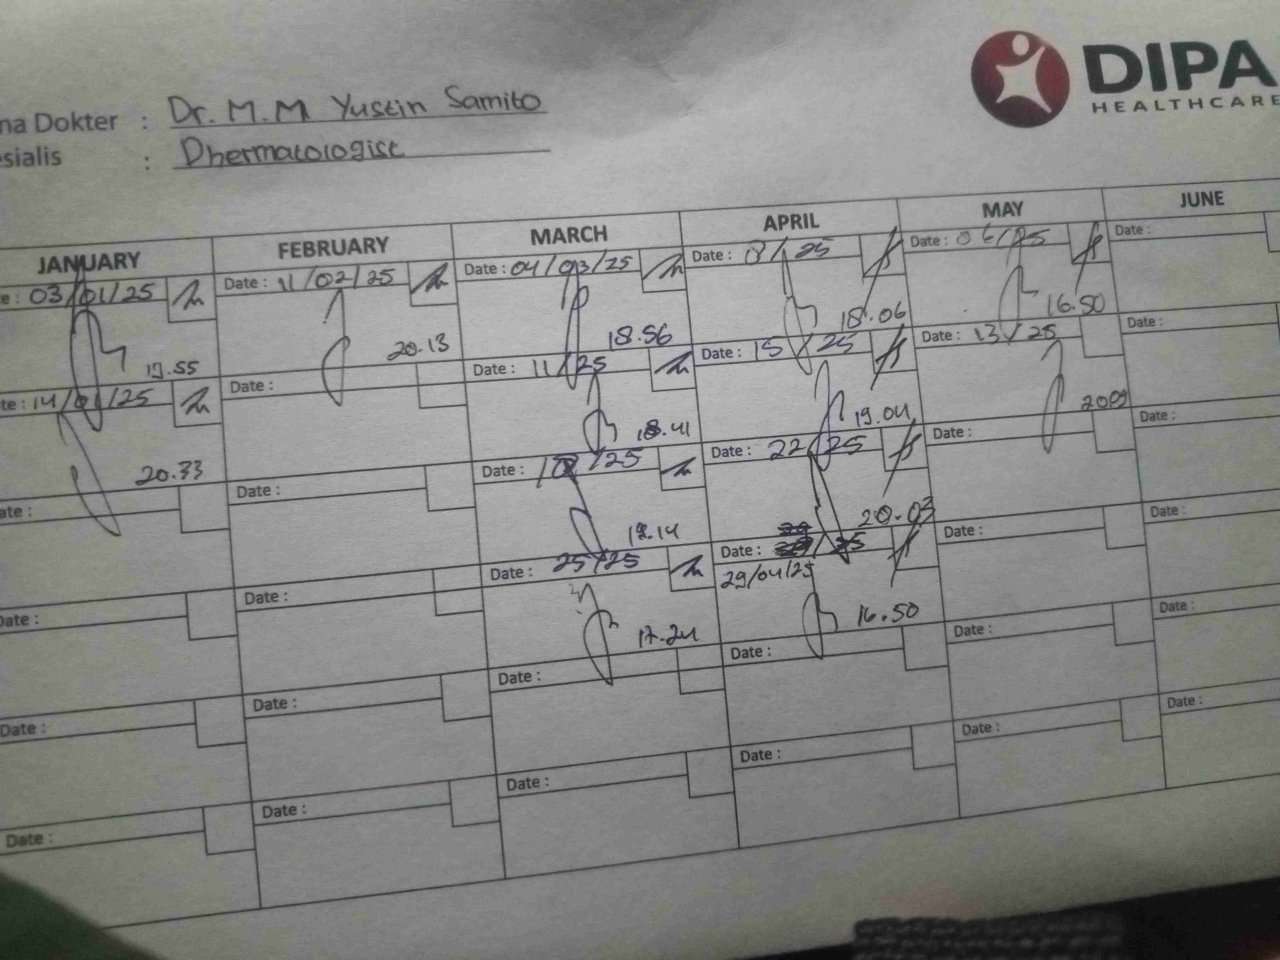 DIPA
HEALTHCARE
na Dokter : Dr. M. M Yustin Samito
esialis : Dhermatologist
JANUARY FEBRUARY MARCH APRIL MAY JUNE
e : 03/01/25 Date : 11/02/25 Date : 04/03/25 Date : /25 Date : 06/25 Date :
19.55 20.13 18.56 18.06 16.50
te : 14/01/25 Date : Date : 11/25 Date : 15/25 Date : 13/25 Date :
20.33 18.41 19.04 2009
ate : Date : Date : /25 Date : 22/25 Date : Date :
19.14 20.03
Date : Date : Date : 25/25 Date : Date : Date :
29/04/25
17.24 16.50
Date : Date : Date : Date : Date : Date :
Date : Date : Date : Date : Date : Date :